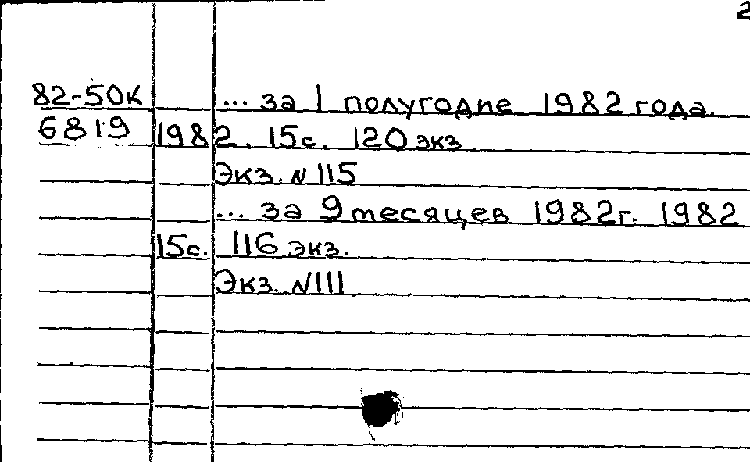 2
82-50К ... за 1 полугодие 1982 года.
6819 1982. 15с. 120 экз
Экз. № 115
... за 9 месяцев 1982г. 1982
15с. 116 экз.
Экз. № 111